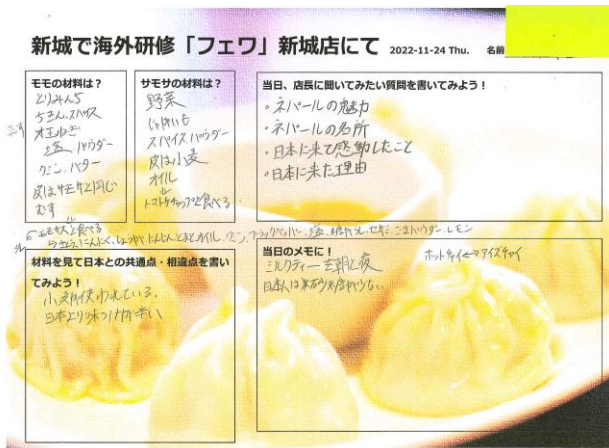 新城で海外研修「フェワ」新城店にて 2022-11-24 Thu. 名前
モモの材料は？
とりみんち
オ玉ねぎ
塩、パウダー
クミン、バター
皮はサモサと同じ
むす
サモサの材料は？
野菜
じゃがいも
スパイスパウダー
皮は小麦
オイル
トマトケチャップと食べる
当日、店長に聞いてみたい質問を書いてみよう！
・ネパールの魅力
・ネパールの名所
・日本に来て感動したこと
・日本に来た理由
と食べる
にんにく、しょうが、にんじん、とまと、オイル、クミン、ブラックペッパー、塩、セサミ、ごまパウダー、レモン
材料を見て日本との共通点・相違点を書い
てみよう！
小麦が使われている。
日本より味つけが辛い
当日のメモに！
ミルクティー→朝と夜
ホットチャイ⇔アイスチャイ
日本人は